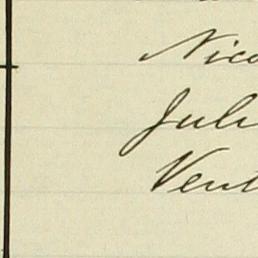 Nico
Juli
Vent